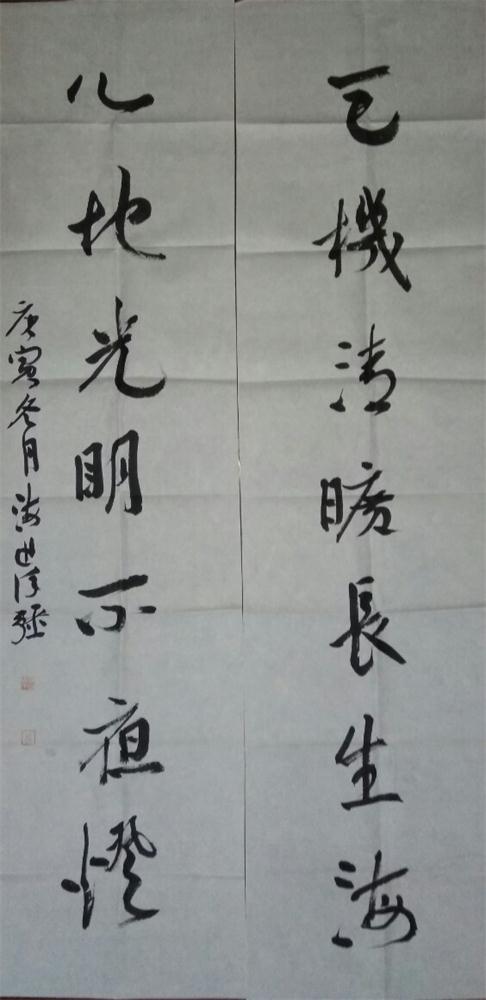 天機清曠長生海
心地光明不夜燈
庚寅冬月海